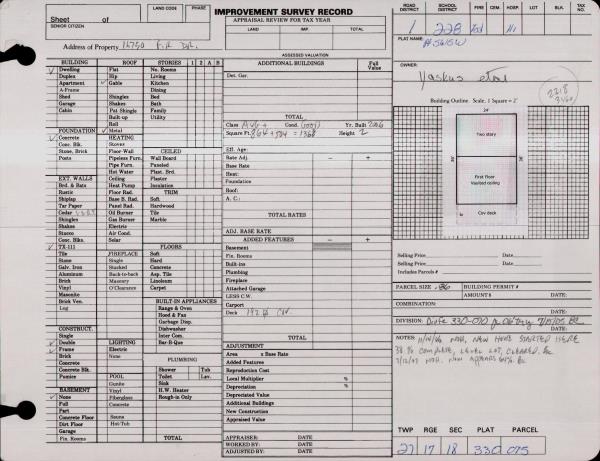 IMPROVEMENT SURVEY RECORD
Sheet of
SENIOR CITIZEN
LAND CODE
PHASE
APPRAISAL REVIEW FOR TAX YEAR
LAND IMP. TOTAL
Address of Property 16750
ASSESSED VALUATION
BUILDING
Dwelling
Duplex
Apartment
A-Frame
Shed
Garage
Cabin
ROOF
Flat
Hip
Gable
Shingles
Shakes
Pat Shingle
Built-up
Roll
Metal
STORIES 1 2 A B
No. Rooms
Living
Kitchen
Dining
Bed
Bath
Family
Utility
FOUNDATION
Concrete
Conc. Blk.
Stone, Brick
Posts
HEATING
Stoves
Floor-Wall
Pipeless Furn.
Pipe Furn.
Hot Water
Ceiling
Heat Pump
Floor Rad.
Base B. Rad.
Panel Rad.
Oil Burner
Gas Burner
Electric
Air Cond.
Solar
CEILED
Wall Board
Paneled
Plast. Brd.
Plaster
Insulation
TRIM
Soft
Hardwood
Tile
Marble
EXT. WALLS
Brd. & Bats
Rustic
Shiplap
Tar Paper
Cedar
Shingles
Shakes
Stucco
Conc. Blks.
TX-111
Tile
Stone
Galv. Iron
Aluminum
Brick
Vinyl
Masonite
Brick Ven.
Log
FIREPLACE
Single
Stacked
Back-to-back
Masonry
O'Clearance
FLOORS
Soft
Hard
Concrete
Asp. Tile
Linoleum
Carpet
BUILT-IN APPLIANCES
Range & Oven
Hood & Fan
Garbage Disp.
Dishwasher
Inter Com.
Bar-B-Que
CONSTRUCT.
Single
Double
Frame
Brick
Concrete
Concrete Blk.
Pumice
LIGHTING
Electric
None
POOL
Gunite
Vinyl
Concrete
Sauna
Hot-Tub
PLUMBING
Shower Tub
Toilet Lav.
Sink
H.W. Heater
Rough-in Only
BASEMENT
None
Full
Part
Concrete Floor
Dirt Floor
Garage
Fin. Rooms
TOTAL
ADDITIONAL BUILDINGS
Full Value
Det. Gar.
TOTAL
Class AVG + Cond. (100%) Yr. Built 2006
Square Ft. 864 + 504 = 1368 Height 2
Eff. Age:
Rate Adj. − +
Base Rate
Heat:
Foundation
Roof:
A. C.:
TOTAL RATES
ADJ. BASE RATE
ADDED FEATURES − +
Basement
Fin. Rooms
Built-ins
Plumbing
Fireplace
Attached Garage
LESS C.W.
Carport
Deck 192 ⌀ CV.
TOTAL
ADJUSTMENT
Area x Base Rate
Added Features
Reproduction Cost
Local Multiplier %
Depreciation %
Depreciated Value
Additional Buildings
New Construction
Appraised Value
APPRAISER: DATE
WORKED BY: DATE
ADJUSTED BY: DATE
ROAD DISTRICT SCHOOL DISTRICT FIRE CEM. HOSP. LOT BLK. TAX NO.
1 228
PLAT NAME:
OWNER:
Building Outline Scale, 1 Square = 2'
Two story
First Floor
Vaulted ceiling
Cov deck
Selling Price DATE:
Selling Price DATE:
Includes Parcels #
PARCEL SIZE BUILDING PERMIT #
AMOUNT $ DATE:
COMBINATION:
DATE:
DIVISION:
DATE:
NOTES: NEW HOME STARTED HERE
38% COMPLETE, LEVEL LOT, CLEARED.
TWP RGE SEC PLAT PARCEL
27 17 18 330 075